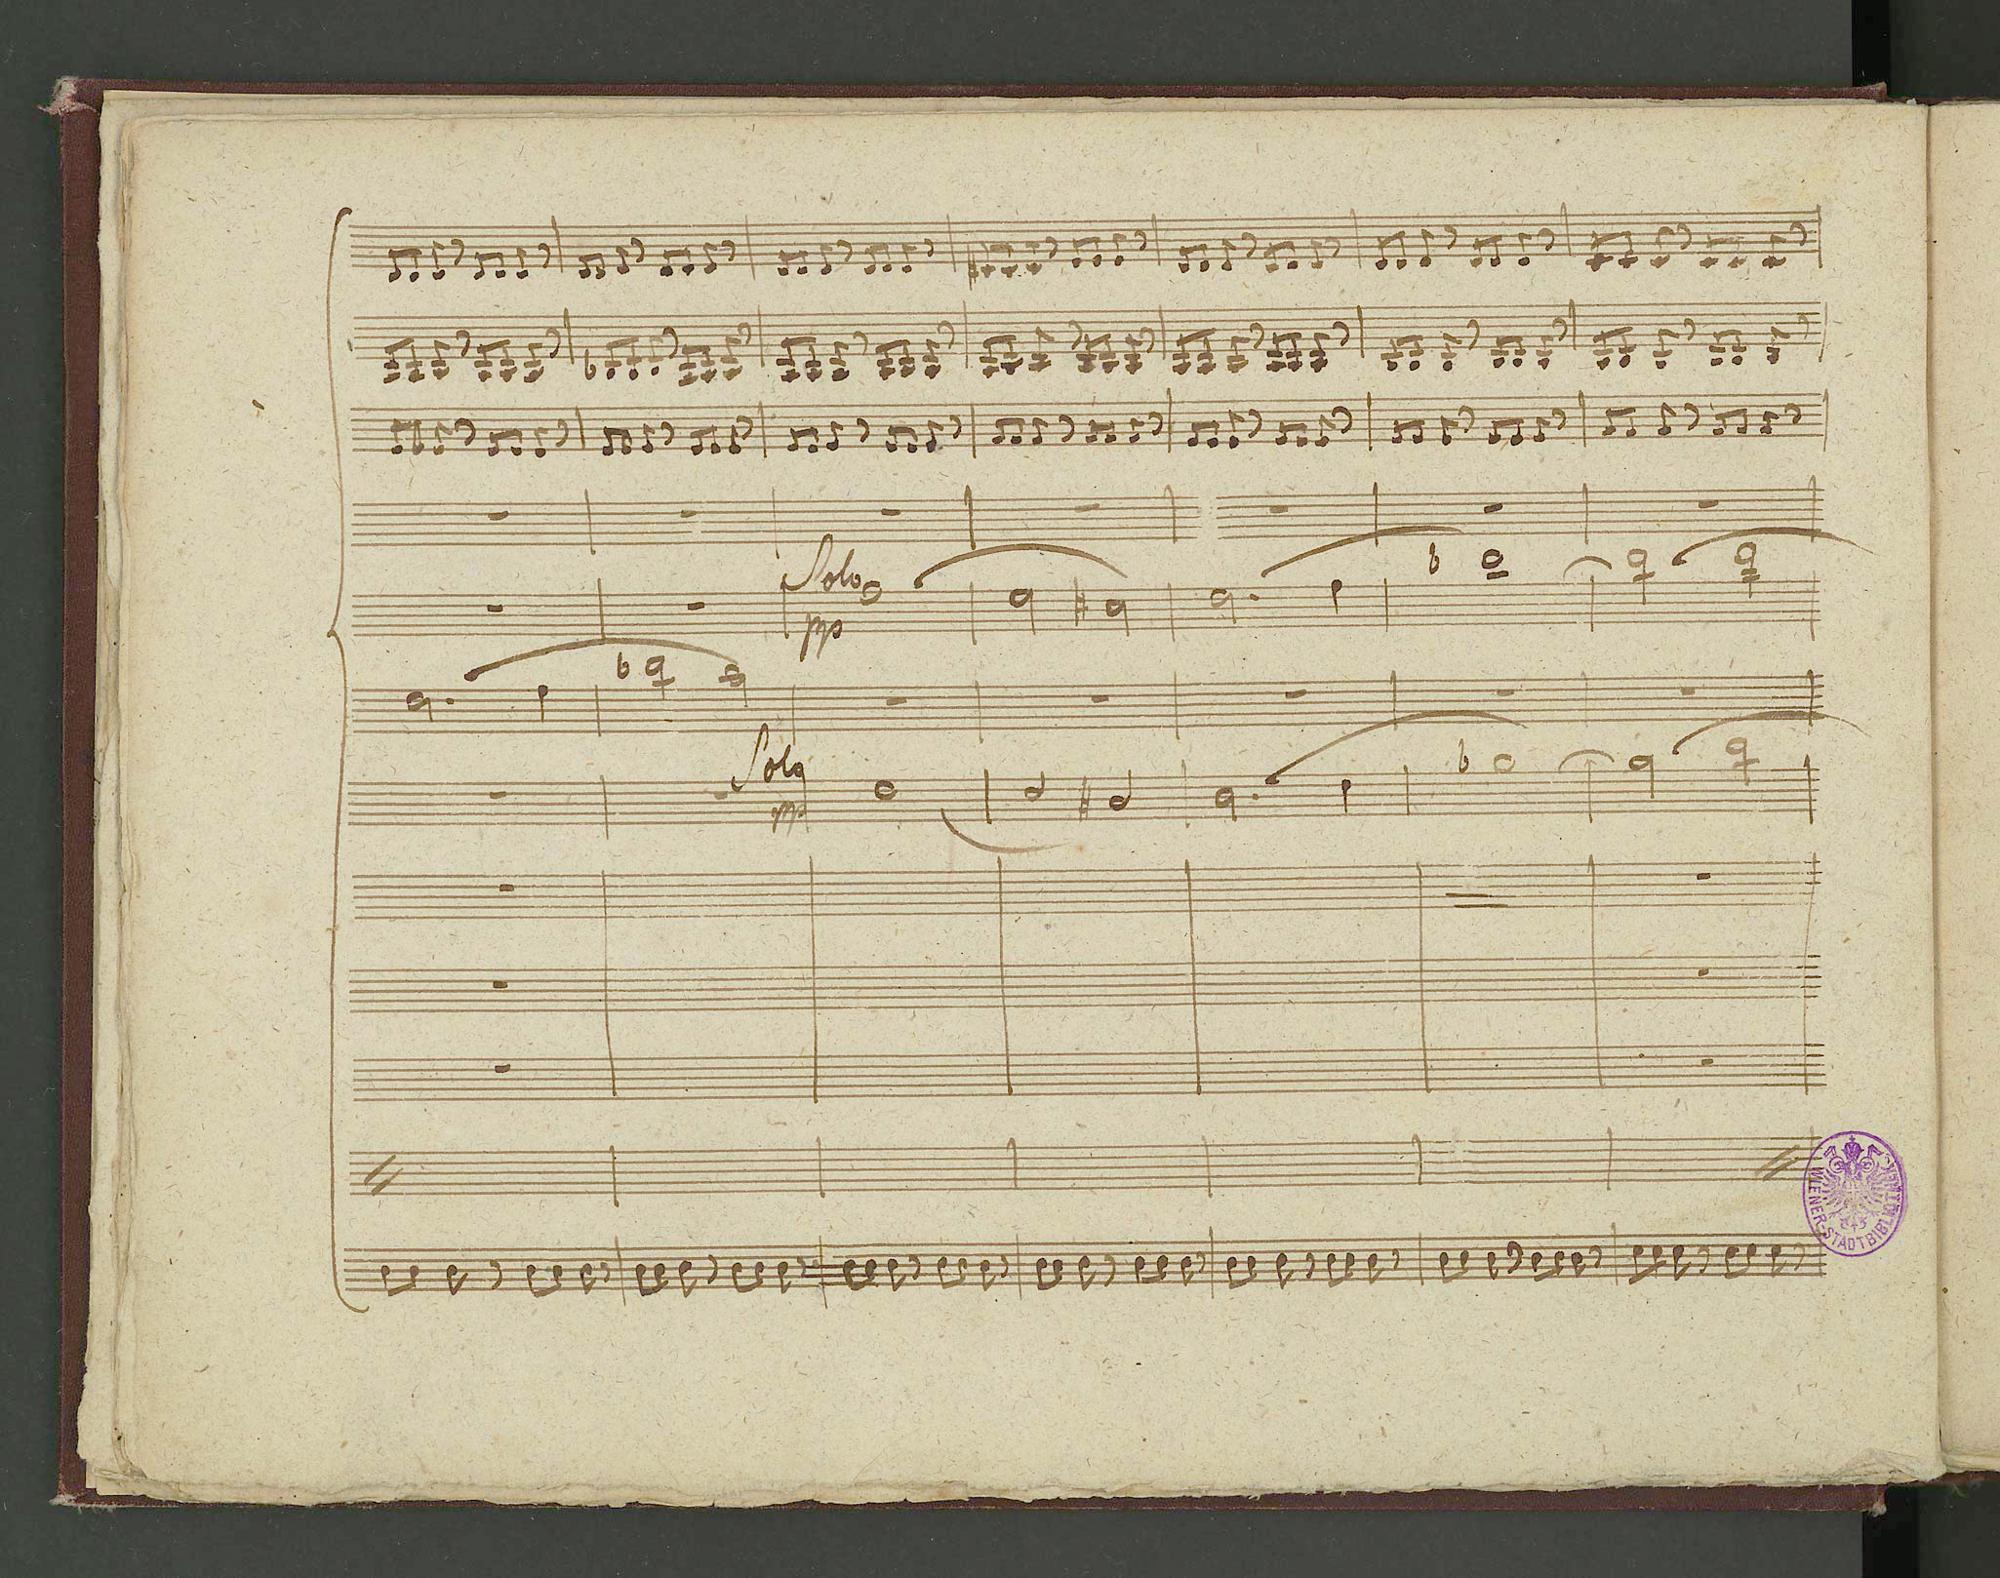 Solo
pp
Solo
pp
WIENER-STADTBIBLIOTHEK